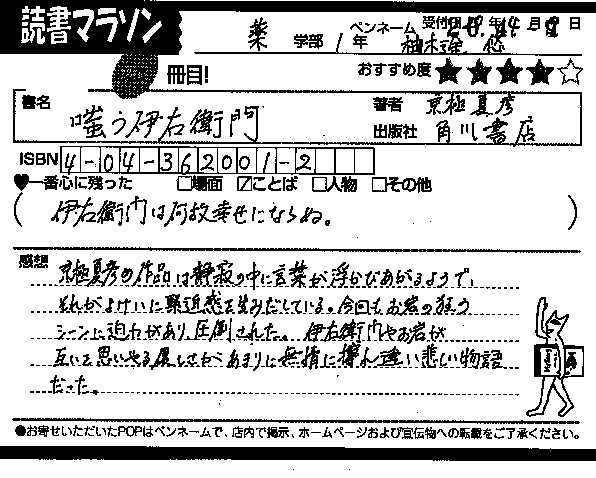 読書マラソン
ペンネーム 受付日 年 月 日
薬 学部 1年
冊目!
おすすめ度 ★★★★☆
書名 嗤う伊右衛門
著者 京極夏彦
出版社 角川書店
ISBN 4-04-362001-2
♥一番心に残った □場面 ☑ことば □人物 □その他
(伊右衛門は何故幸せにならぬ。)
感想
京極夏彦の作品は静寂の中に言葉が浮かびあがるようで、
それがよけいに緊迫感を生みだしている。今回もお岩の狂う
シーンに迫力があり圧倒された。伊右衛門やお岩が
互いを思いやる優しさがあまりに無情に擦れ違い悲しい物語
だった。
●お寄せいただいたPOPはペンネームで、店内で掲示、ホームページおよび宣伝物への転載をご了承ください。